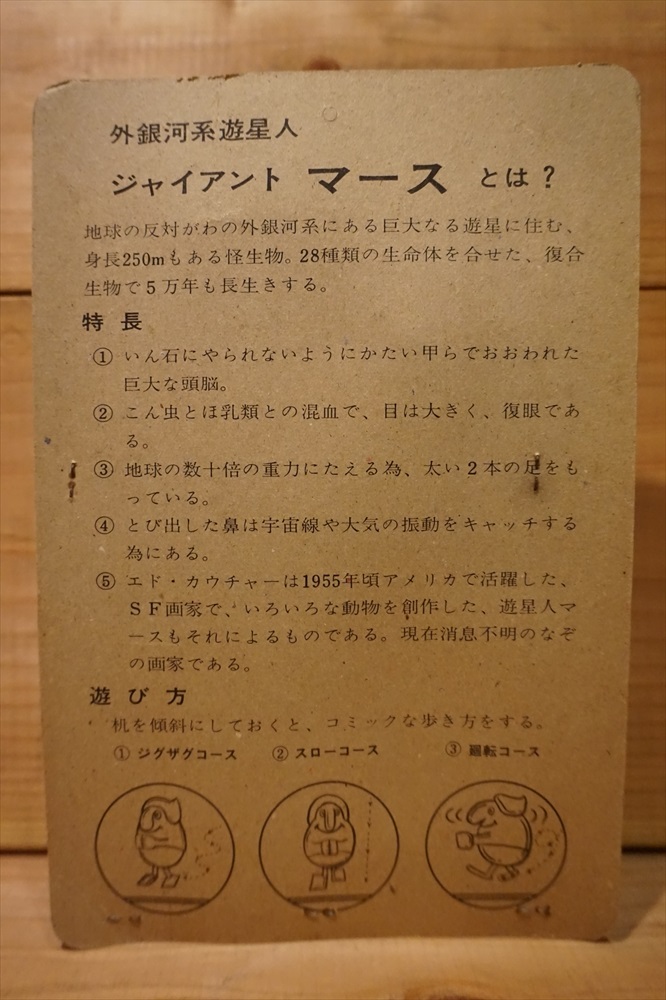 外銀河系遊星人
ジャイアント マース とは？
地球の反対がわの外銀河系にある巨大なる遊星に住む、
身長250mもある怪生物。28種類の生命体を合せた、復合
生物で５万年も長生きする。
特長
① いん石にやられないようにかたい甲らでおおわれた
巨大な頭脳。
② こん虫とほ乳類との混血で、目は大きく、復眼であ
る。
③ 地球の数十倍の重力にたえる為、太い２本の足をも
っている。
④ とび出した鼻は宇宙線や大気の振動をキャッチする
為にある。
⑤ エド・カウチャーは1955年頃アメリカで活躍した、
ＳＦ画家で、いろいろな動物を創作した、遊星人マ
ースもそれによるものである。現在消息不明のなぞ
の画家である。
遊び方
机を傾斜にしておくと、コミックな歩き方をする。
① ジグザグコース ② スローコース ③ 廻転コース